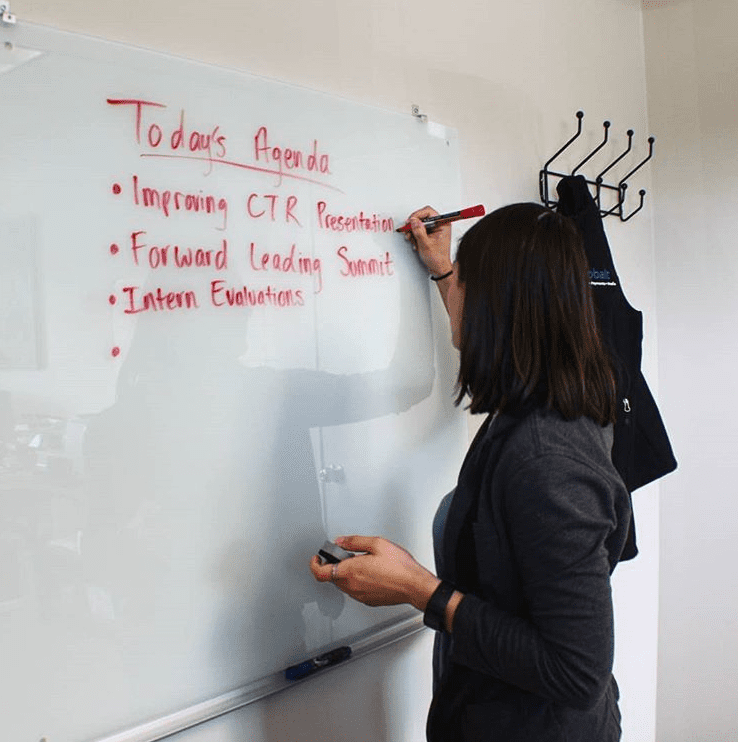 Today's Agenda
• Improving CTR Presentation
• Forward Leading Summit
• Intern Evaluations
•